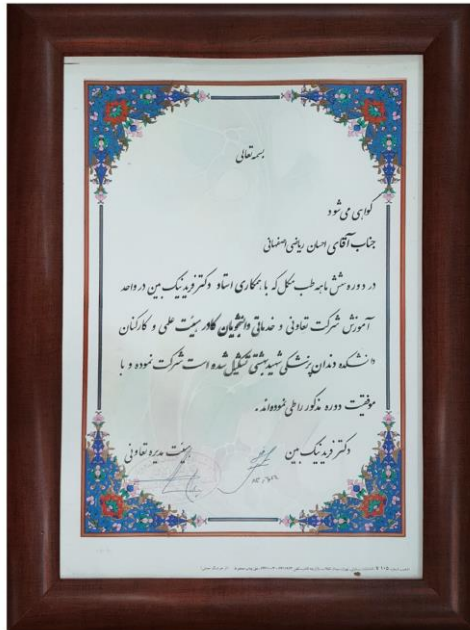 بسمه تعالی
گواهی می شود
جناب آقای احسان ریاضی اصفهانی
در دوره شش ماهه طب مکمل که با همکاری استاد دکتر فرید نیک بین در واحد
آموزش شرکت تعاونی و خدماتی دانشجویان کادر هیئت علمی و کارکنان
دانشکده دندان پزشکی شهید بهشتی تشکیل شده است شرکت نموده و با
موفقیت دوره مذکور را طی نموده اند.
دکتر فرید نیک بین
هیئت مدیره تعاونی